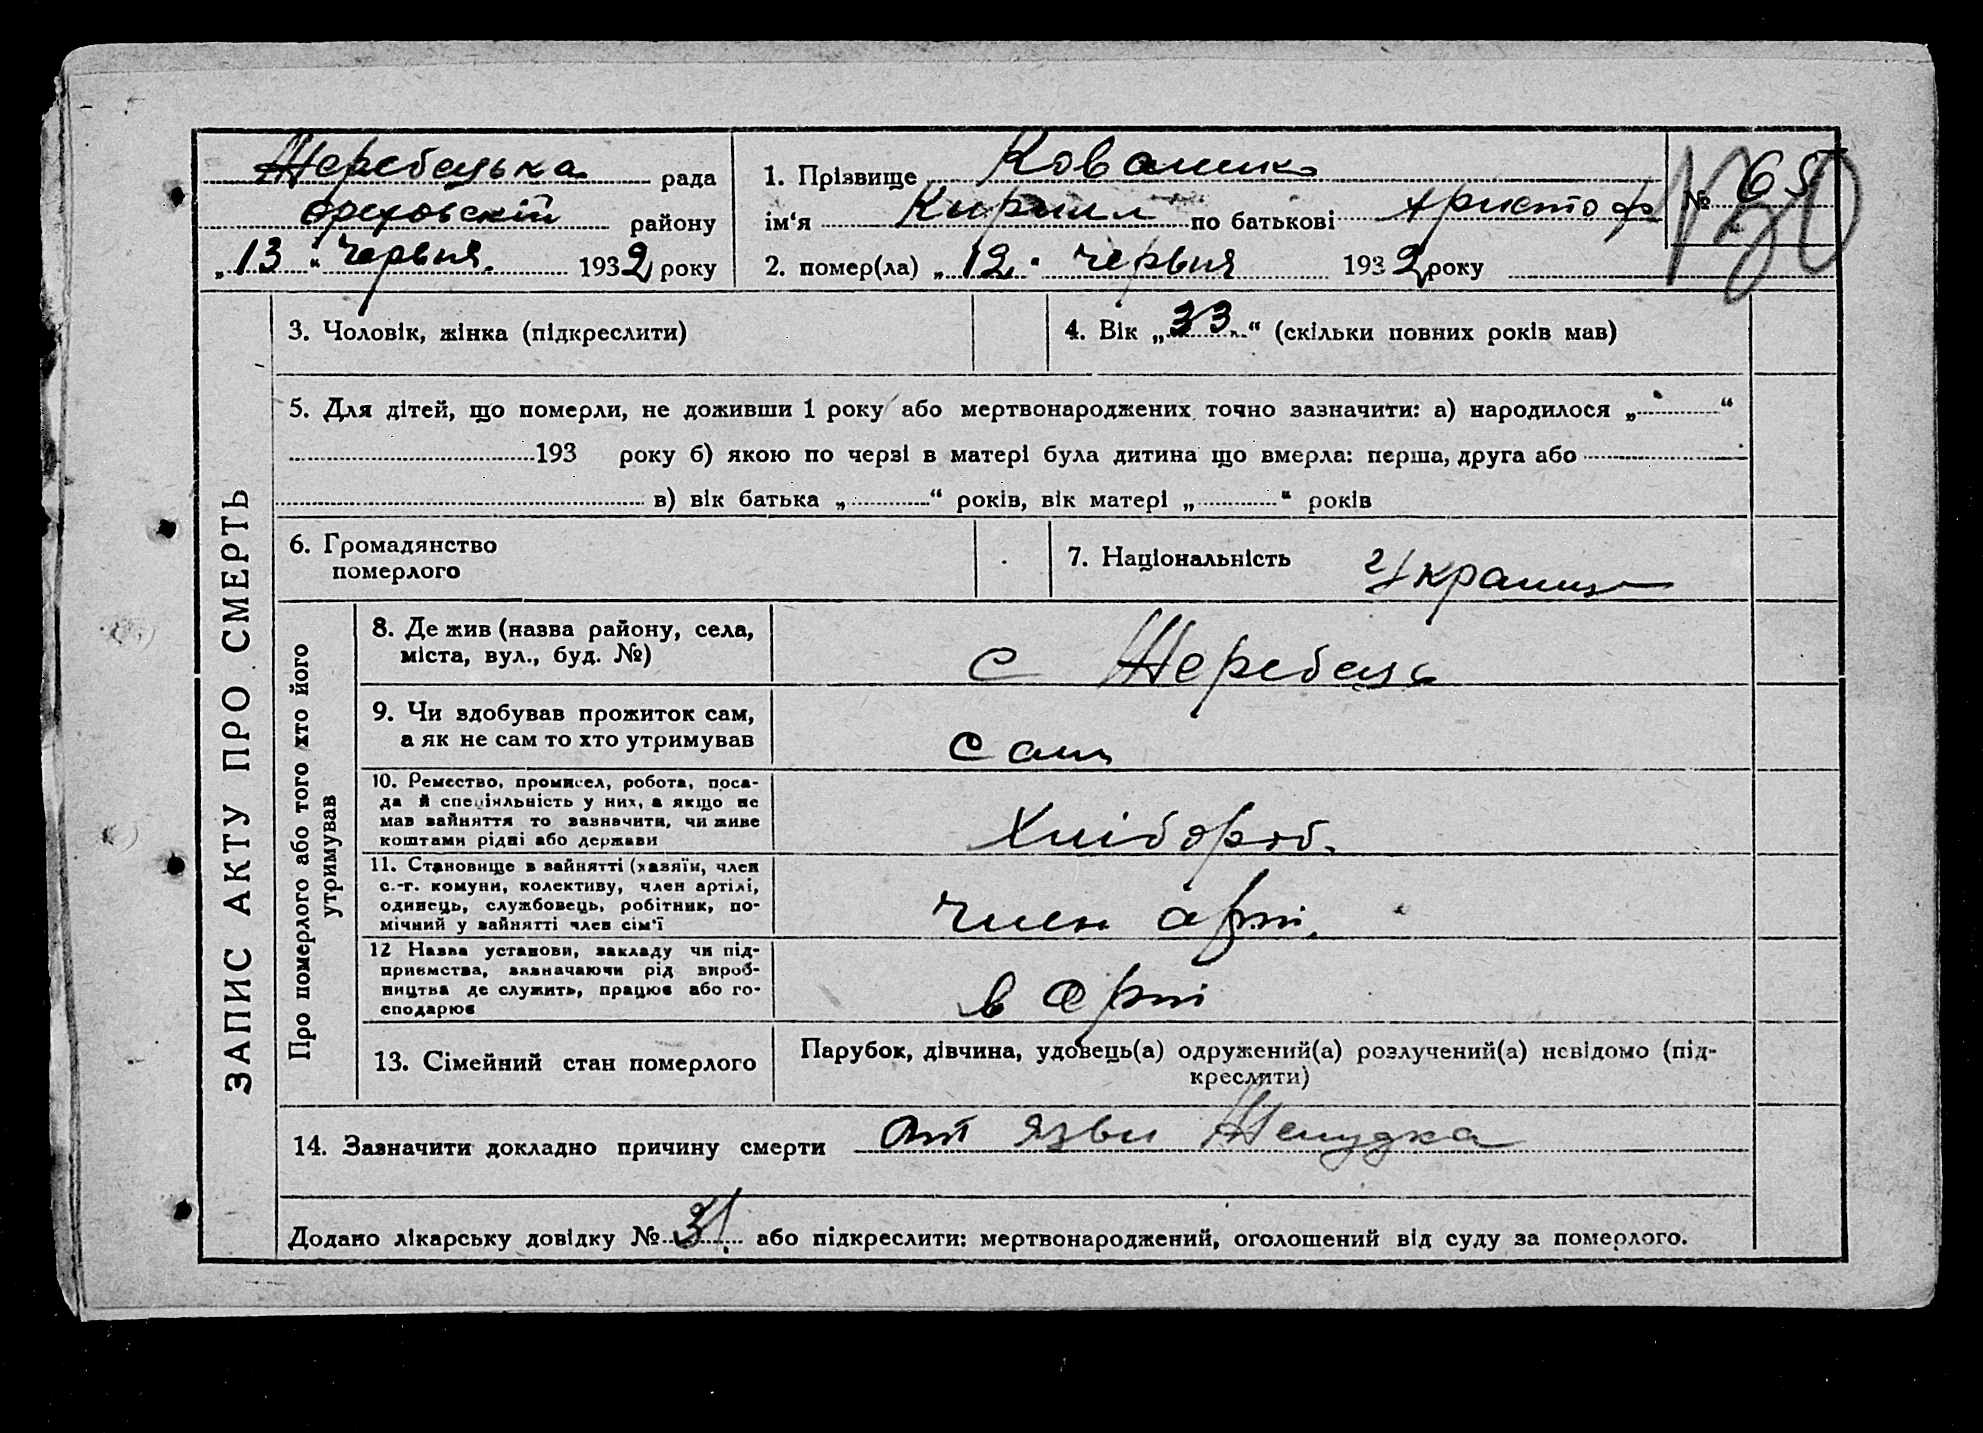 Жеребецька рада
Ореховскій району
„13“ червня 1932 року
1. Прізвище
ім‘я Кирилл по батькові Христоф
2. помер(ла) „12“ червня 1932 року
№ 65
ЗАПИС АКТУ ПРО СМЕРТЬ
3. Чоловік, жінка (підкреслити)
4. Вік „33“ (скільки повних років мав)
5. Для дітей, що померли, не доживши 1 року або мертвонароджених точно зазначити: а) народилося „ “
193 року б) якою по черзі в матері була дитина що вмерла: перша, друга або
в) вік батька „ “ років, вік матері „ “ років
6. Громадянство
померлого
7. Національність Украинц
Про померлого або того хто його
утримував
8. Де жив (назва району, села,
міста, вул., буд. №)
с Жеребець
9. Чи здобував прожиток сам,
а як не сам то хто утримував
сам
10. Ремество, промисел, робота, поса-
да й спеціяльність у них, а якщо не
мав зайняття то зазначити, чи живе
коштами рідні або держави
Хлібороб.
11. Становище в зайнятті (хазяїн, член
с.-г. комуни, колективу, член артілі,
одинець, службовець, робітник, по-
мічний у зайнятті член сім‘ї
член арті.
12 Назва установи, закладу чи під-
приємства, зазначаючи рід вироб-
ництва де служить, працює або го-
сподарює
в арті
13. Сімейний стан померлого
Парубок, дівчина, удовець(а) одружений(а) розлучений(а) невідомо (під-
креслити)
14. Зазначити докладно причину смерти от язви Желудка
Додано лікарську довідку № 31 або підкреслити: мертвонароджений, оголошений від суду за померлого.